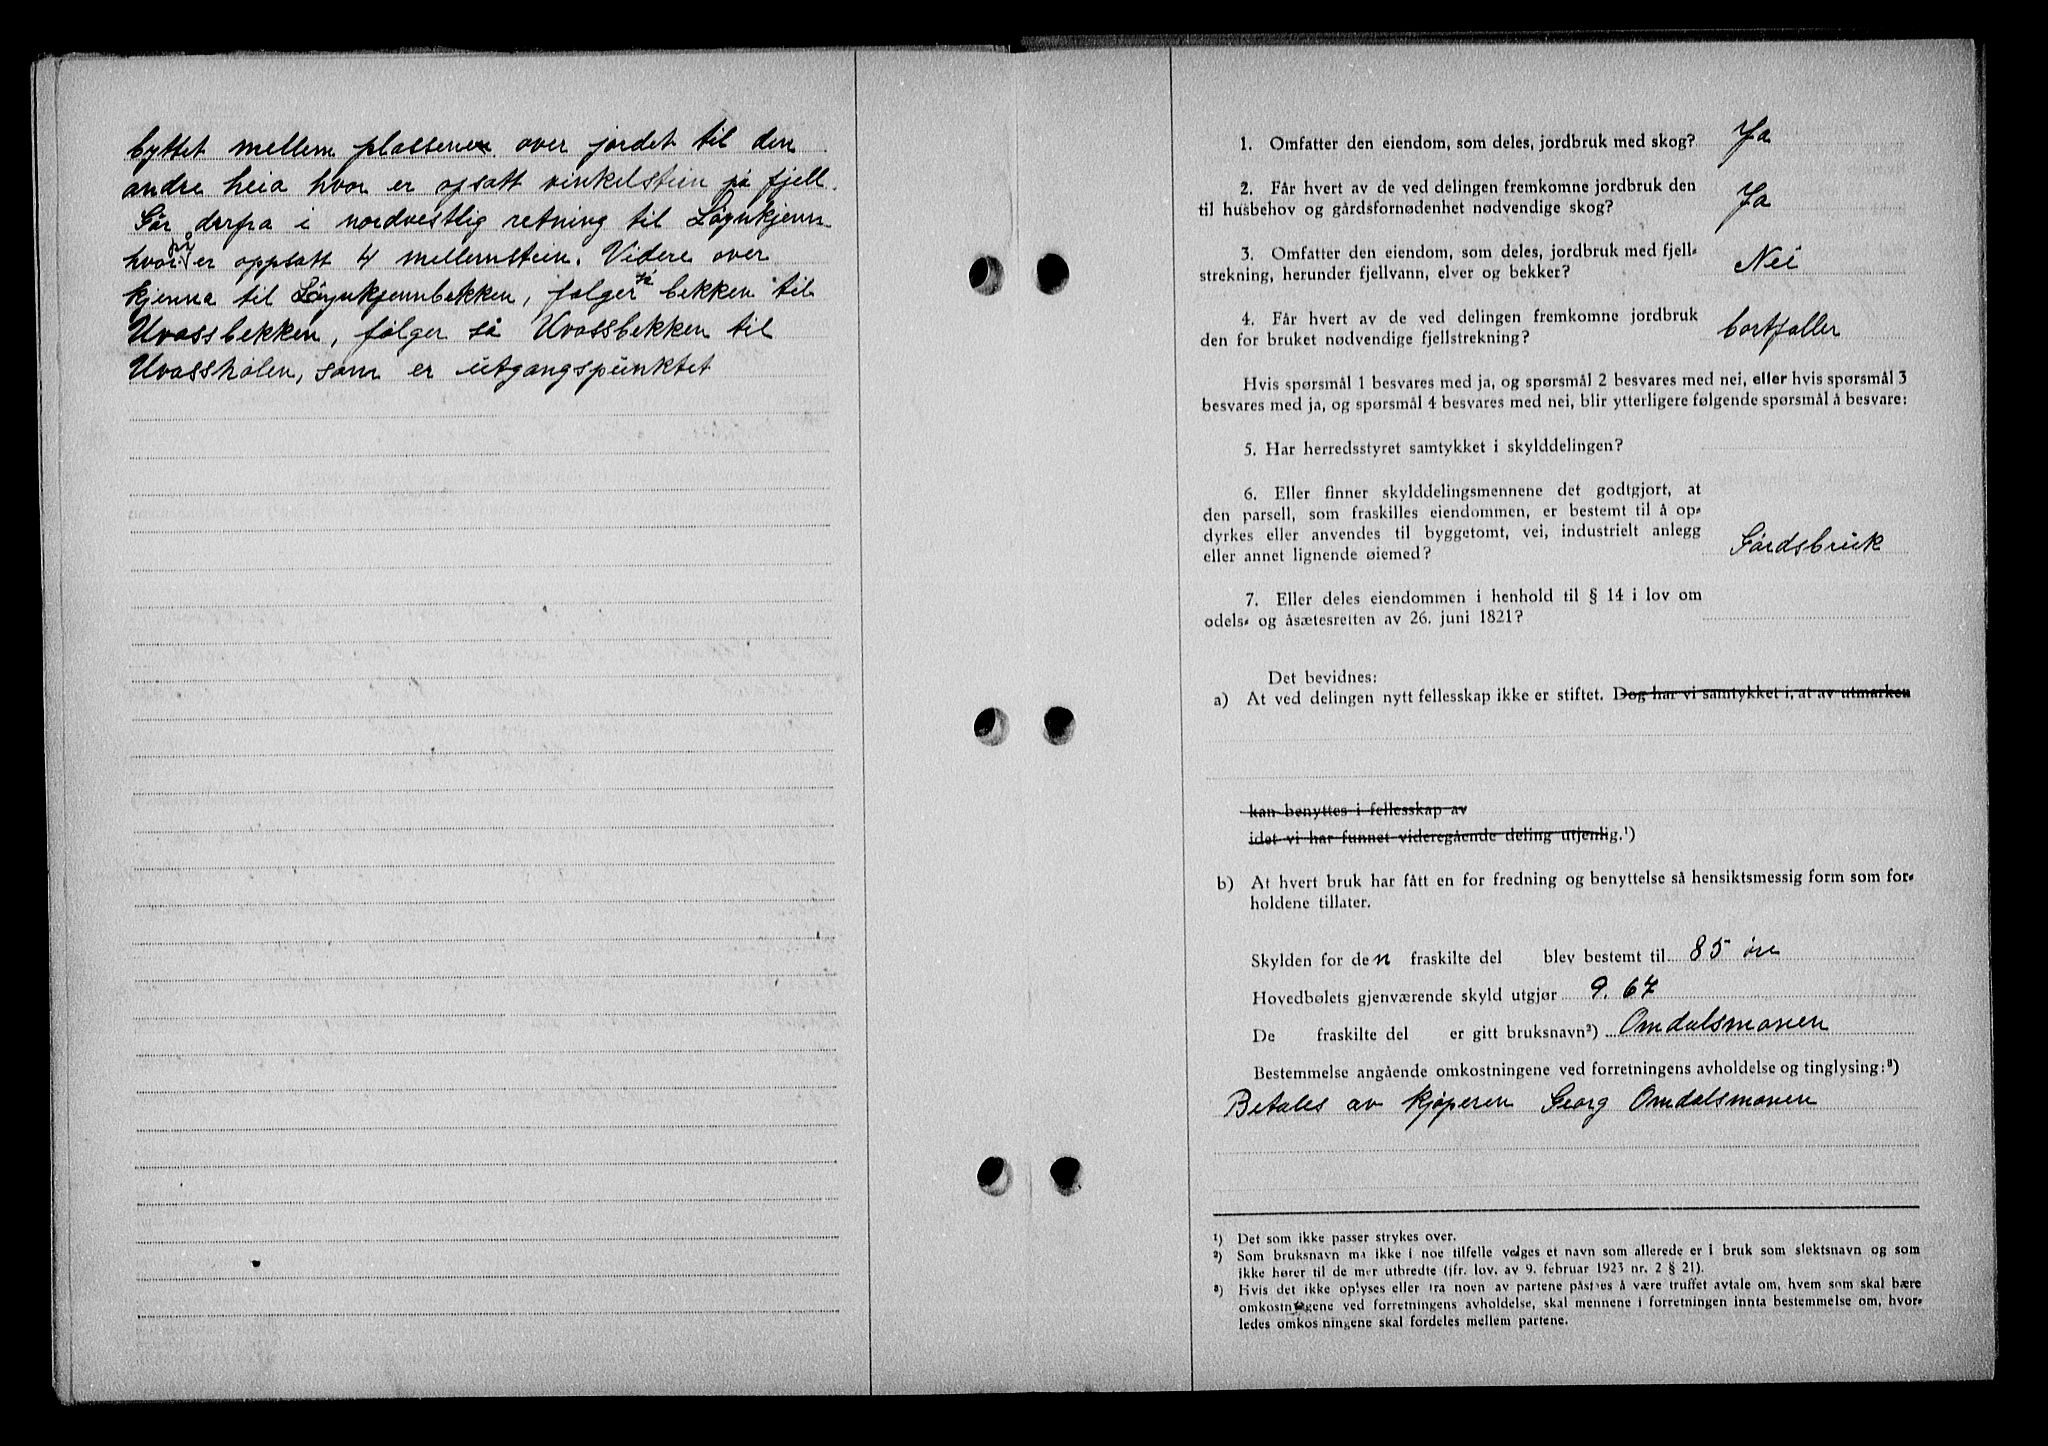 byttet mellem plassene over jordet til den
andre heia hvor er opsatt vinkelstein på fjell.
Går derfra i nordvestlig retning til Löynkjenn
hvor på er oppsatt 4 mellemstein. Videre over
kjenna til Löynkjennbekken, følger så bekken til
Uvassbekken, følger så Uvassbekken til
Uvasshølen, som er utgangspunktet
1. Omfatter den eiendom, som deles, jordbruk med skog? Ja
2. Får hvert av de ved delingen fremkomne jordbruk den
til husbehov og gårdsfornødenhet nødvendige skog? Ja
3. Omfatter den eiendom, som deles, jordbruk med fjell-
strekning, herunder fjellvann, elver og bekker? Nei
4. Får hvert av de ved delingen fremkomne jordbruk
den for bruket nødvendige fjellstrekning? bortfaller
Hvis spørsmål 1 besvares med ja, og spørsmål 2 besvares med nei, eller hvis spørsmål 3
besvares med ja, og spørsmål 4 besvares med nei, blir ytterligere følgende spørsmål å besvare:
5. Har herredsstyret samtykket i skylddelingen?
6. Eller finner skylddelingsmennene det godtgjort, at
den parsell, som fraskilles eiendommen, er bestemt til å op-
dyrkes eller anvendes til byggetomt, vei, industrielt anlegg
eller annet lignende øiemed? Gårdsbruk
7. Eller deles eiendommen i henhold til § 14 i lov om
odels- og åsætesretten av 26. juni 1821?
Det bevidnes:
a) At ved delingen nytt fellesskap ikke er stiftet. Dog har vi samtykket i, at av utmarken
kan benyttes i fellesskap av
idet vi har funnet videregående deling utjenlig.¹)
b) At hvert bruk har fått en for fredning og benyttelse så hensiktsmessig form som for-
holdene tillater.
Skylden for den fraskilte del blev bestemt til 85 öre
Hovedbølets gjenværende skyld utgjør 9.67
De fraskilte del er gitt bruksnavn²) Omdalsmonen
Bestemmelse angående omkostningene ved forretningens avholdelse og tinglysing:³)
Betales av kjøperen Georg Omdalsmonen
¹) Det som ikke passer strykes over.
²) Som bruksnavn må ikke i noe tilfelle velges et navn som allerede er i bruk som slektsnavn og som
ikke hører til de mer utbredte (jfr. lov. av 9. februar 1923 nr. 2 § 21).
³) Hvis det ikke oplyses eller fra noen av partene påståes å være truffet avtale om, hvem som skal bære
omkostningene ved forretningens avholdelse, skal mennene i forretningen innta bestemmelse om, hvor-
ledes omkostningene skal fordeles mellem partene.